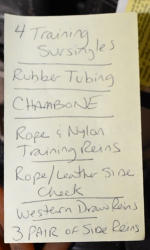 4 Training
Sursingles
Rubber Tubing
CHAMBONE
Rope & Nylon
Training Reins
Rope/Leather Side
Check
Western Draw Reins
3 PAIR of Side Reins